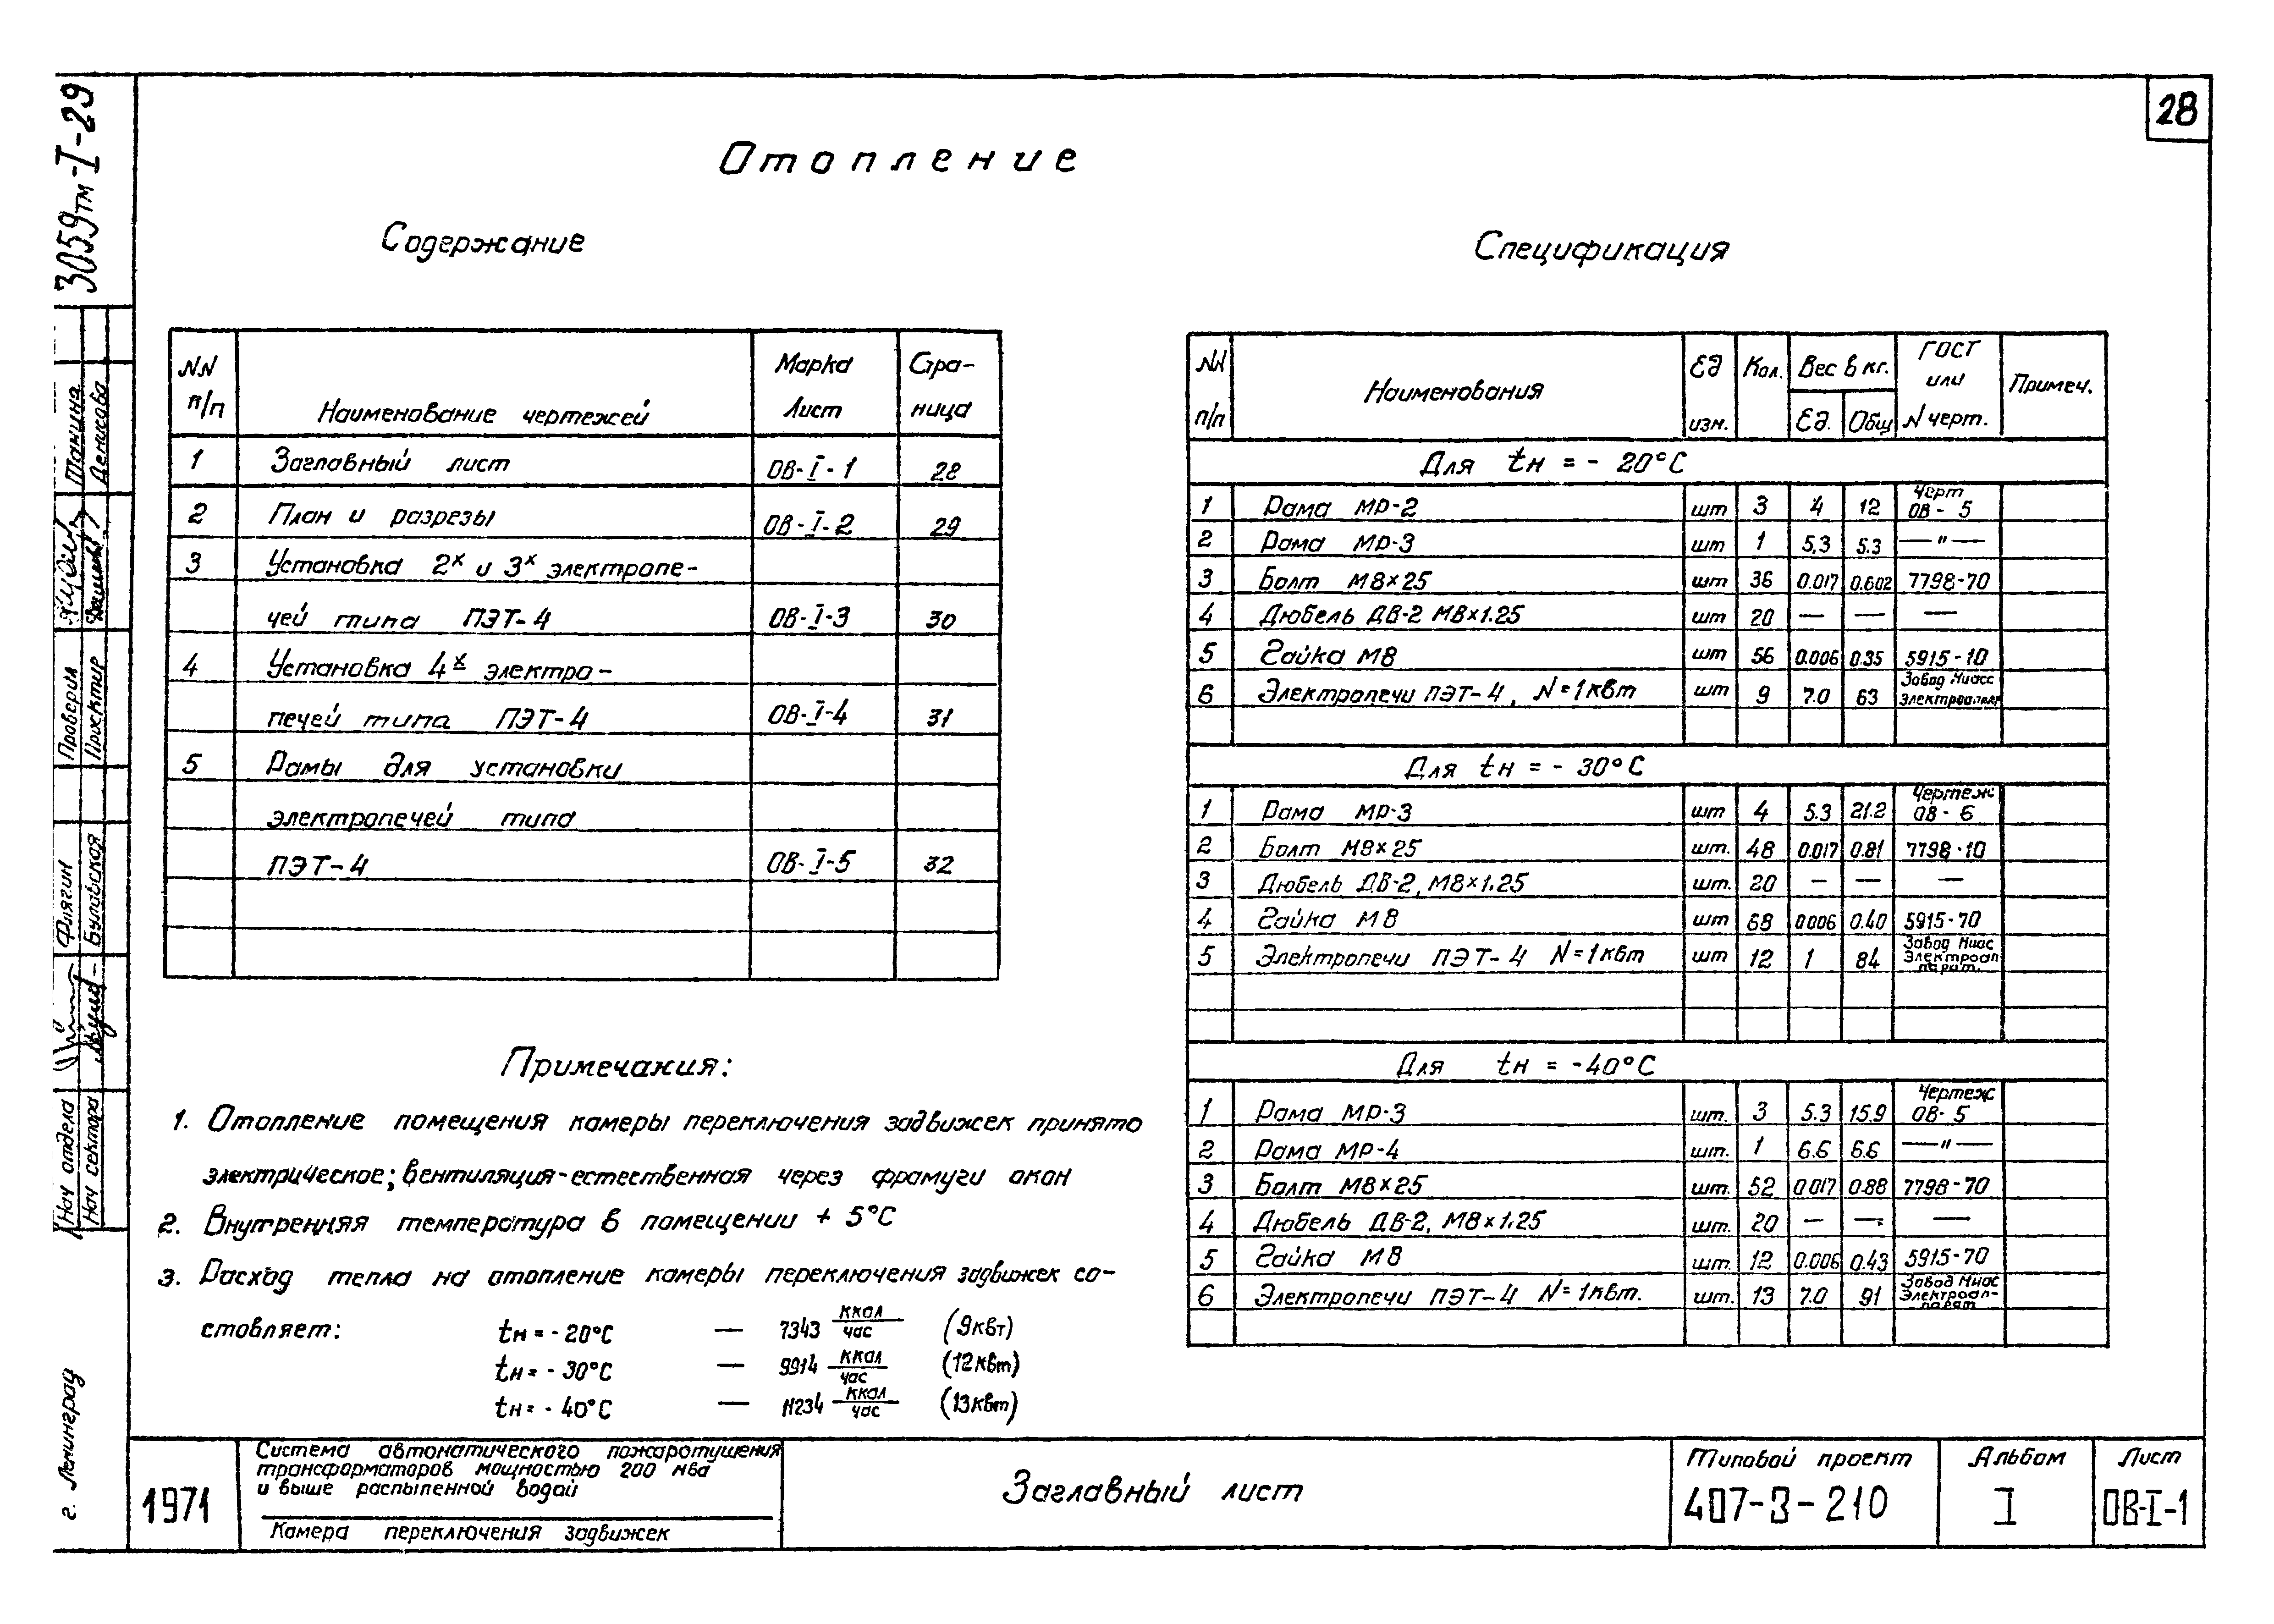 28
3059тм-I-29
Отопление
Содержание
NN п/п Наименование чертежей Марка Лист Стра- ница
1 Заглавный лист ОВ-I-1 28
2 План и разрезы ОВ-I-2 29
3 Установка 2х и 3х электропе-
чей типа ПЭТ-4 ОВ-I-3 30
4 Установка 4х электро-
печей типа ПЭТ-4 ОВ-I-4 31
5 Рамы для установки
электропечей типа
ПЭТ-4 ОВ-I-5 32
Примечания:
1. Отопление помещения камеры переключения задвижек принято
электрическое; вентиляция-естественная через фрамуги окон
2. Внутренняя температура в помещении + 5°С
3. Расход тепла на отопление камеры переключения задвижек со-
ставляет: tн = - 20°С — 7343 ккал/час (9квт)
tн = - 30°С — 9914 ккал/час (12квт)
tн = - 40°С — 11234 ккал/час (13квт)
Спецификация
NN п/п Наименования Ед изм. Кол. Вес в кг. Ед. Общ ГОСТ или N черт. Примеч.
Для tн = - 20°С
1 Рама МР-2 шт 3 4 12 Черт ОВ - 5
2 Рама МР-3 шт 1 5,3 5.3 — " —
3 Болт М8×25 шт 36 0.017 0.602 7798-70
4 Дюбель ДВ-2 М8×1.25 шт 20 — — —
5 Гайка М8 шт 56 0.006 0.35 5915-10
6 Электропечи ПЭТ-4, N=1квт шт 9 7.0 63 Завод Миасс
Для tн = - 30°С
1 Рама МР-3 шт 4 5.3 21.2 Чертеж ОВ - 6
2 Болт М8×25 шт. 48 0.017 0.81 7798-10
3 Дюбель ДВ-2, М8×1.25 шт. 20 — — —
4 Гайка М8 шт 68 0.006 0.40 5915-70
5 Электропечи ПЭТ-4 N=1квт шт 12 1 84 Завод Миас Электроап парат.
Для tн = -40°С
1 Рама МР-3 шт. 3 5.3 15.9 Чертеж ОВ- 5
2 Рама МР-4 шт. 1 6.6 6.6 — " —
3 Болт М8×25 шт. 52 0.017 0.88 7798-70
4 Дюбель ДВ-2, М8×1.25 шт. 20 — — —
5 Гайка М8 шт. 12 0.006 0.43 5915-70
6 Электропечи ПЭТ-4 N=1квт. шт. 13 7.0 91 Завод Миас Электроап- парат
Нач отдела Флягин
Нач сектора Бульвская
Проверил Панина
Проектир Денисова
г. Ленинград
1971
Система автоматического пожаротушения
трансформаторов мощностью 200 мва
и выше распыленной водой
Камера переключения задвижек
Заглавный лист
Типовой проект
407-3-210
Альбом
I
Лист
ОВ-I-1